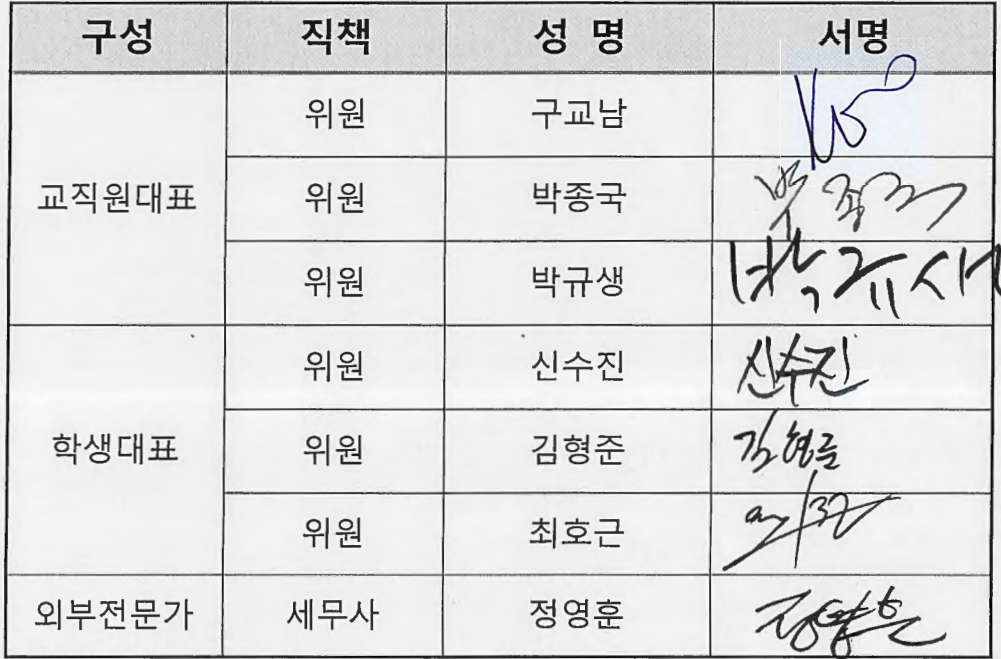 구성 직책 성 명 서명
위원 구교남
교직원대표 위원 박종국 박종국
위원 박규생 박규생
위원 신수진 신수진
학생대표 위원 김형준 김형준
위원 최호근
외부전문가 세무사 정영훈 정영훈